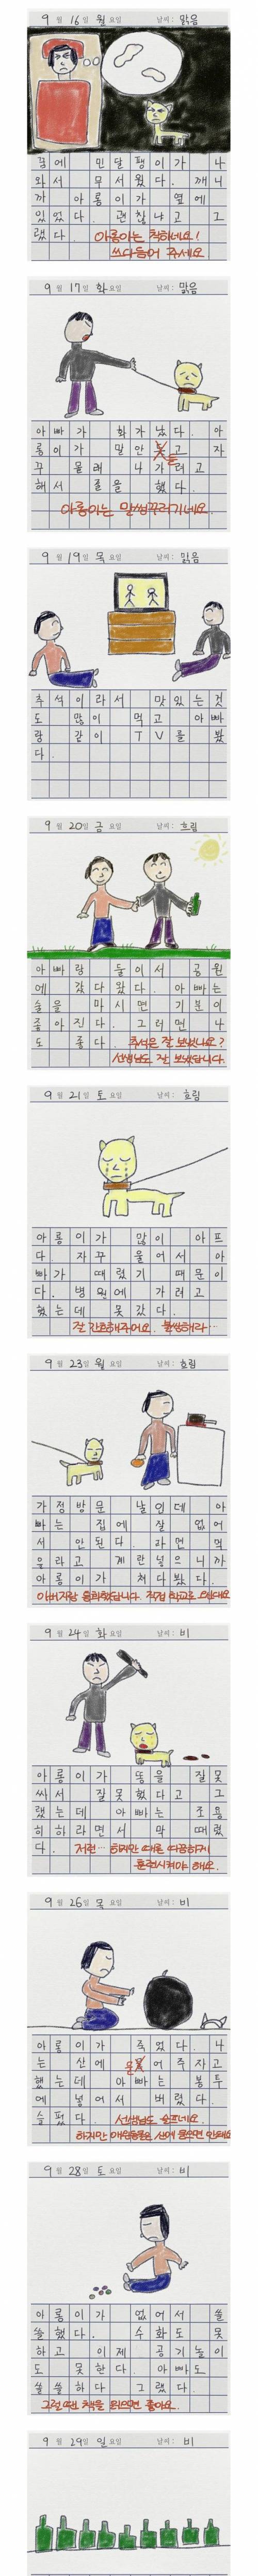 9월 16일 월요일 날씨: 맑음
꿈에 민달팽이가 나
와서 무서웠다. 깨니
까 아롱이가 옆에
있었다. 괜찮냐고 그
랬다. 아롱이는 착하네요!
쓰다듬어 주세요
9월 17일 화요일 날씨: 맑음
아빠가 화가 났다. 아
롱이가 말 안 듣고 자
꾸 몰래 나가려고
해서 줄을 했다.
아롱이는 말썽꾸러기네요.
9월 19일 목요일 날씨: 맑음
추석이라서 맛있는 것
도 많이 먹고 아빠
랑 같이 TV를 봤
다.
9월 20일 금요일 날씨: 흐림
아빠랑 둘이서 공원
에 갔다 왔다. 아빠는
술을 마시면 기분이
좋아진다. 그러면 나
도 좋다. 추석은 잘 보냈나요?
선생님도 잘 보냈답니다.
9월 21일 토요일 날씨: 흐림
아롱이가 많이 아프
다. 자꾸 울어서 아
빠가 때렸기 때문이
다. 병원에 가려고
했는데 못 갔다.
잘 간호해주어요. 불쌍해라...
9월 23일 월요일 날씨: 흐림
가정방문 날인데 아
빠는 집에 잘 없어
서 안 된다. 라면 먹
을라고 계란 넣으니까
아롱이가 쳐다봤다.
아버지랑 통화했답니다. 직접 학교로 오신대요
9월 24일 화요일 날씨: 비
아롱이가 똥을 잘못
싸서 잘못했다고 그
랬는데 아빠는 조용
히 하라면서 막 때렸
다. 저런... 하지만 때론 따끔하게
훈련시켜야 해요.
9월 26일 목요일 날씨: 비
아롱이가 죽었다. 나
는 산에 묻어주자고
했는데 아빠는 봉투
에 넣어서 버렸다.
슬펐다. 선생님도 슬프네요.
하지만 애완동물을 산에 묻으면 안돼요
9월 28일 토요일 날씨: 비
아롱이가 없어서 쓸
쓸했다. 수화도 못
하고 이제 공기놀이
도 못한다. 아빠도
쓸쓸하다 그랬다.
그럴 땐 책을 읽으면 좋아요.
9월 29일 일요일 날씨: 비